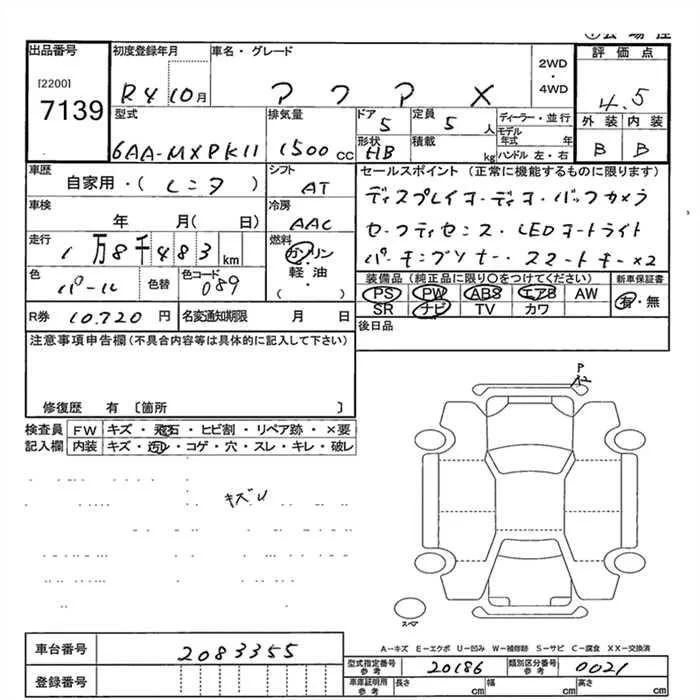 出品番号
[2200]
7139
初度登録年月
R4 10月
車名・グレード
アクア X
2WD
・
4WD
評価点
4.5
外装 内装
B B
型式
6AA-MXPK11
排気量
1500 cc
ドア
5
定員
5 人
形状
HB
積載
kg
ディーラー・並行
モデル年式 年
ハンドル 左・右
車歴
自家用・( レンタ )
シフト
AT
車検
年 月( 日)
冷房
AAC
走行
1万8千483 km
燃料
ガソリン
・
軽油
・
( )
色
パール
色替
色コード
089
R券 10,720 円
名変通知期限 月 日
セールスポイント(正常に機能するものに限ります)
ディスプレイオーディオ・バックカメラ
セーフティセンス・LEDオートライト
パーキングソナー・スマートキー×2
装備品(純正品に限り〇をつけてください)
PS PW ABS エアB AW
SR ナビ TV カワ
新車保証書
有・無
後日品
注意事項申告欄(不具合内容等は具体的に記入して下さい)
修復歴 有 〔箇所 〕
検査員 FW キズ・飛石・ヒビ割・リペア跡・×要
記入欄 内装 キズ・汚レ・コゲ・穴・スレ・キレ・破レ
P
キズレ
スペア
A-キズ E-エクボ U-凹み W-補修跡 S-サビ C-腐食 XX-交換済
車台番号 2083355
登録番号
型式指定番号
参考
20186
類別区分番号
参考
0021
車庫証明用
参考
長さ cm 幅 cm 高さ cm